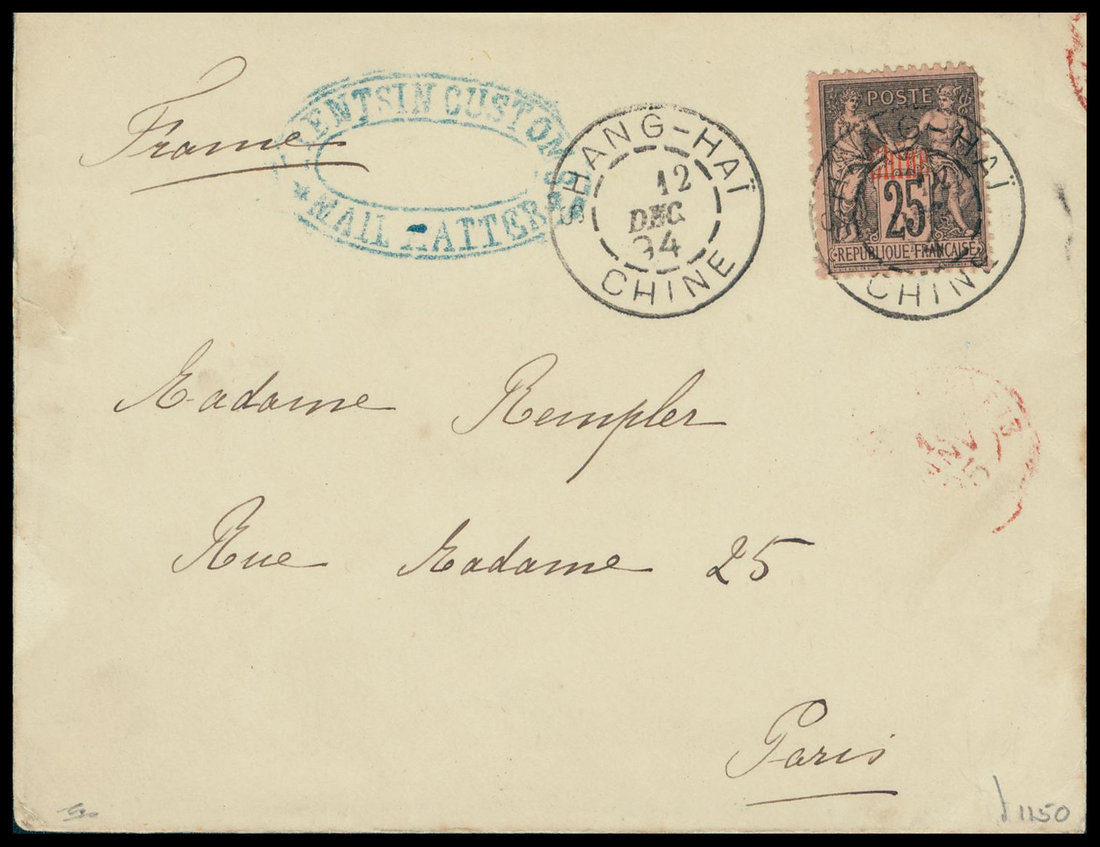 France
TIENTSIN CUSTOMS
MAIL MATTER
SHANG-HAÏ
12
DEC
94
CHINE
POSTE
Chine
25
REPUBLIQUE FRANÇAISE
SHANG-HAÏ
CHINE
Madame Rempler
Rue Madame 25
Paris
1150